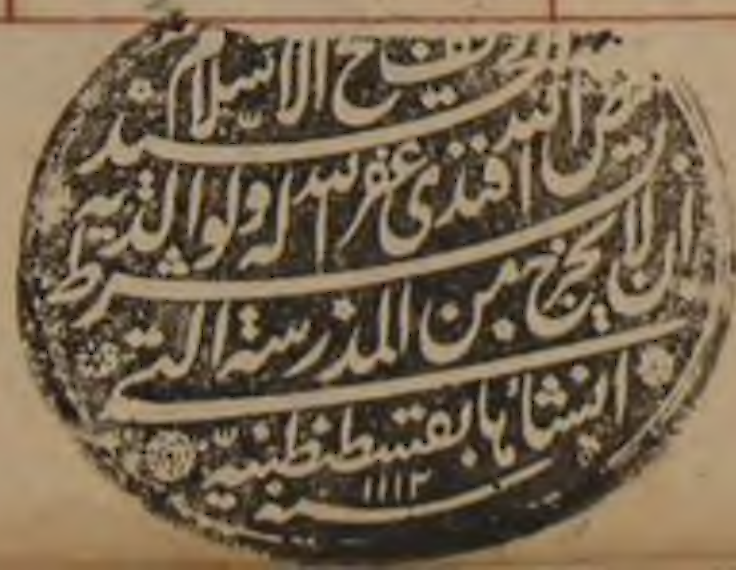 شيخ الاسلام السيد
فيض الله افندى غفر الله له ولوالديه بشرط
ان لا يخرج من المدرسة التى
انشأها بقسطنطنية
سنه ١١١٢